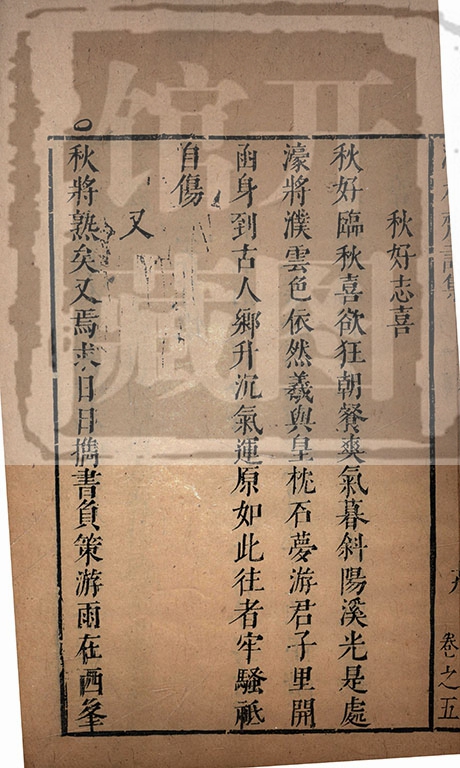 秋好志喜
秋好臨秋喜欲狂朝餐爽氣暮斜陽溪光是處
濠將濮雲色依然羲與皇枕石夢游君子里開
函身到古人鄉升沉氣運原如此往者牢騷祗
自傷
又
秋將熟矣又焉求日日攜書負策游雨在西峯
卷之五
开图
馆藏